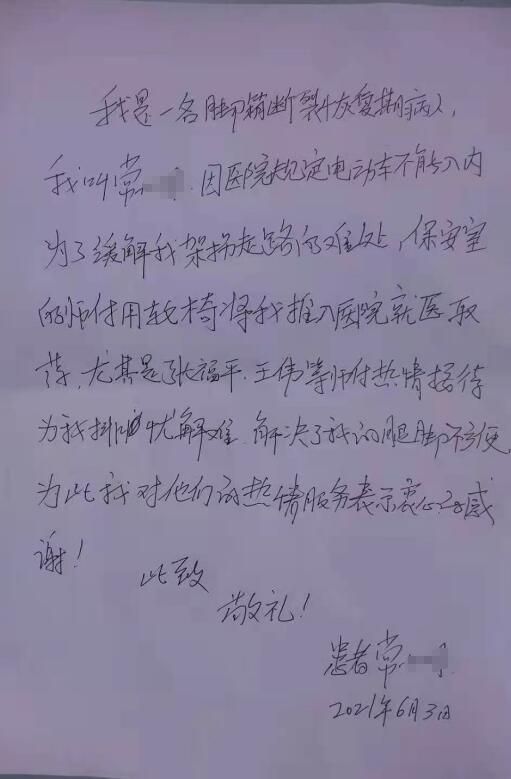 我是一名脚部筋断裂恢复期病人,
我叫常 因医院规定电动车不能入内
为了缓解我架拐走路的难处,保安室
的师付用轮椅将我推入医院就医取
药,尤其是张福平.王伟等师付热情接待
为我排忧解难,解决了我的腿脚不便,
为此我对他们的热情服务表示衷心的感
谢!
此致
敬礼!
患者常
2021年6月3日